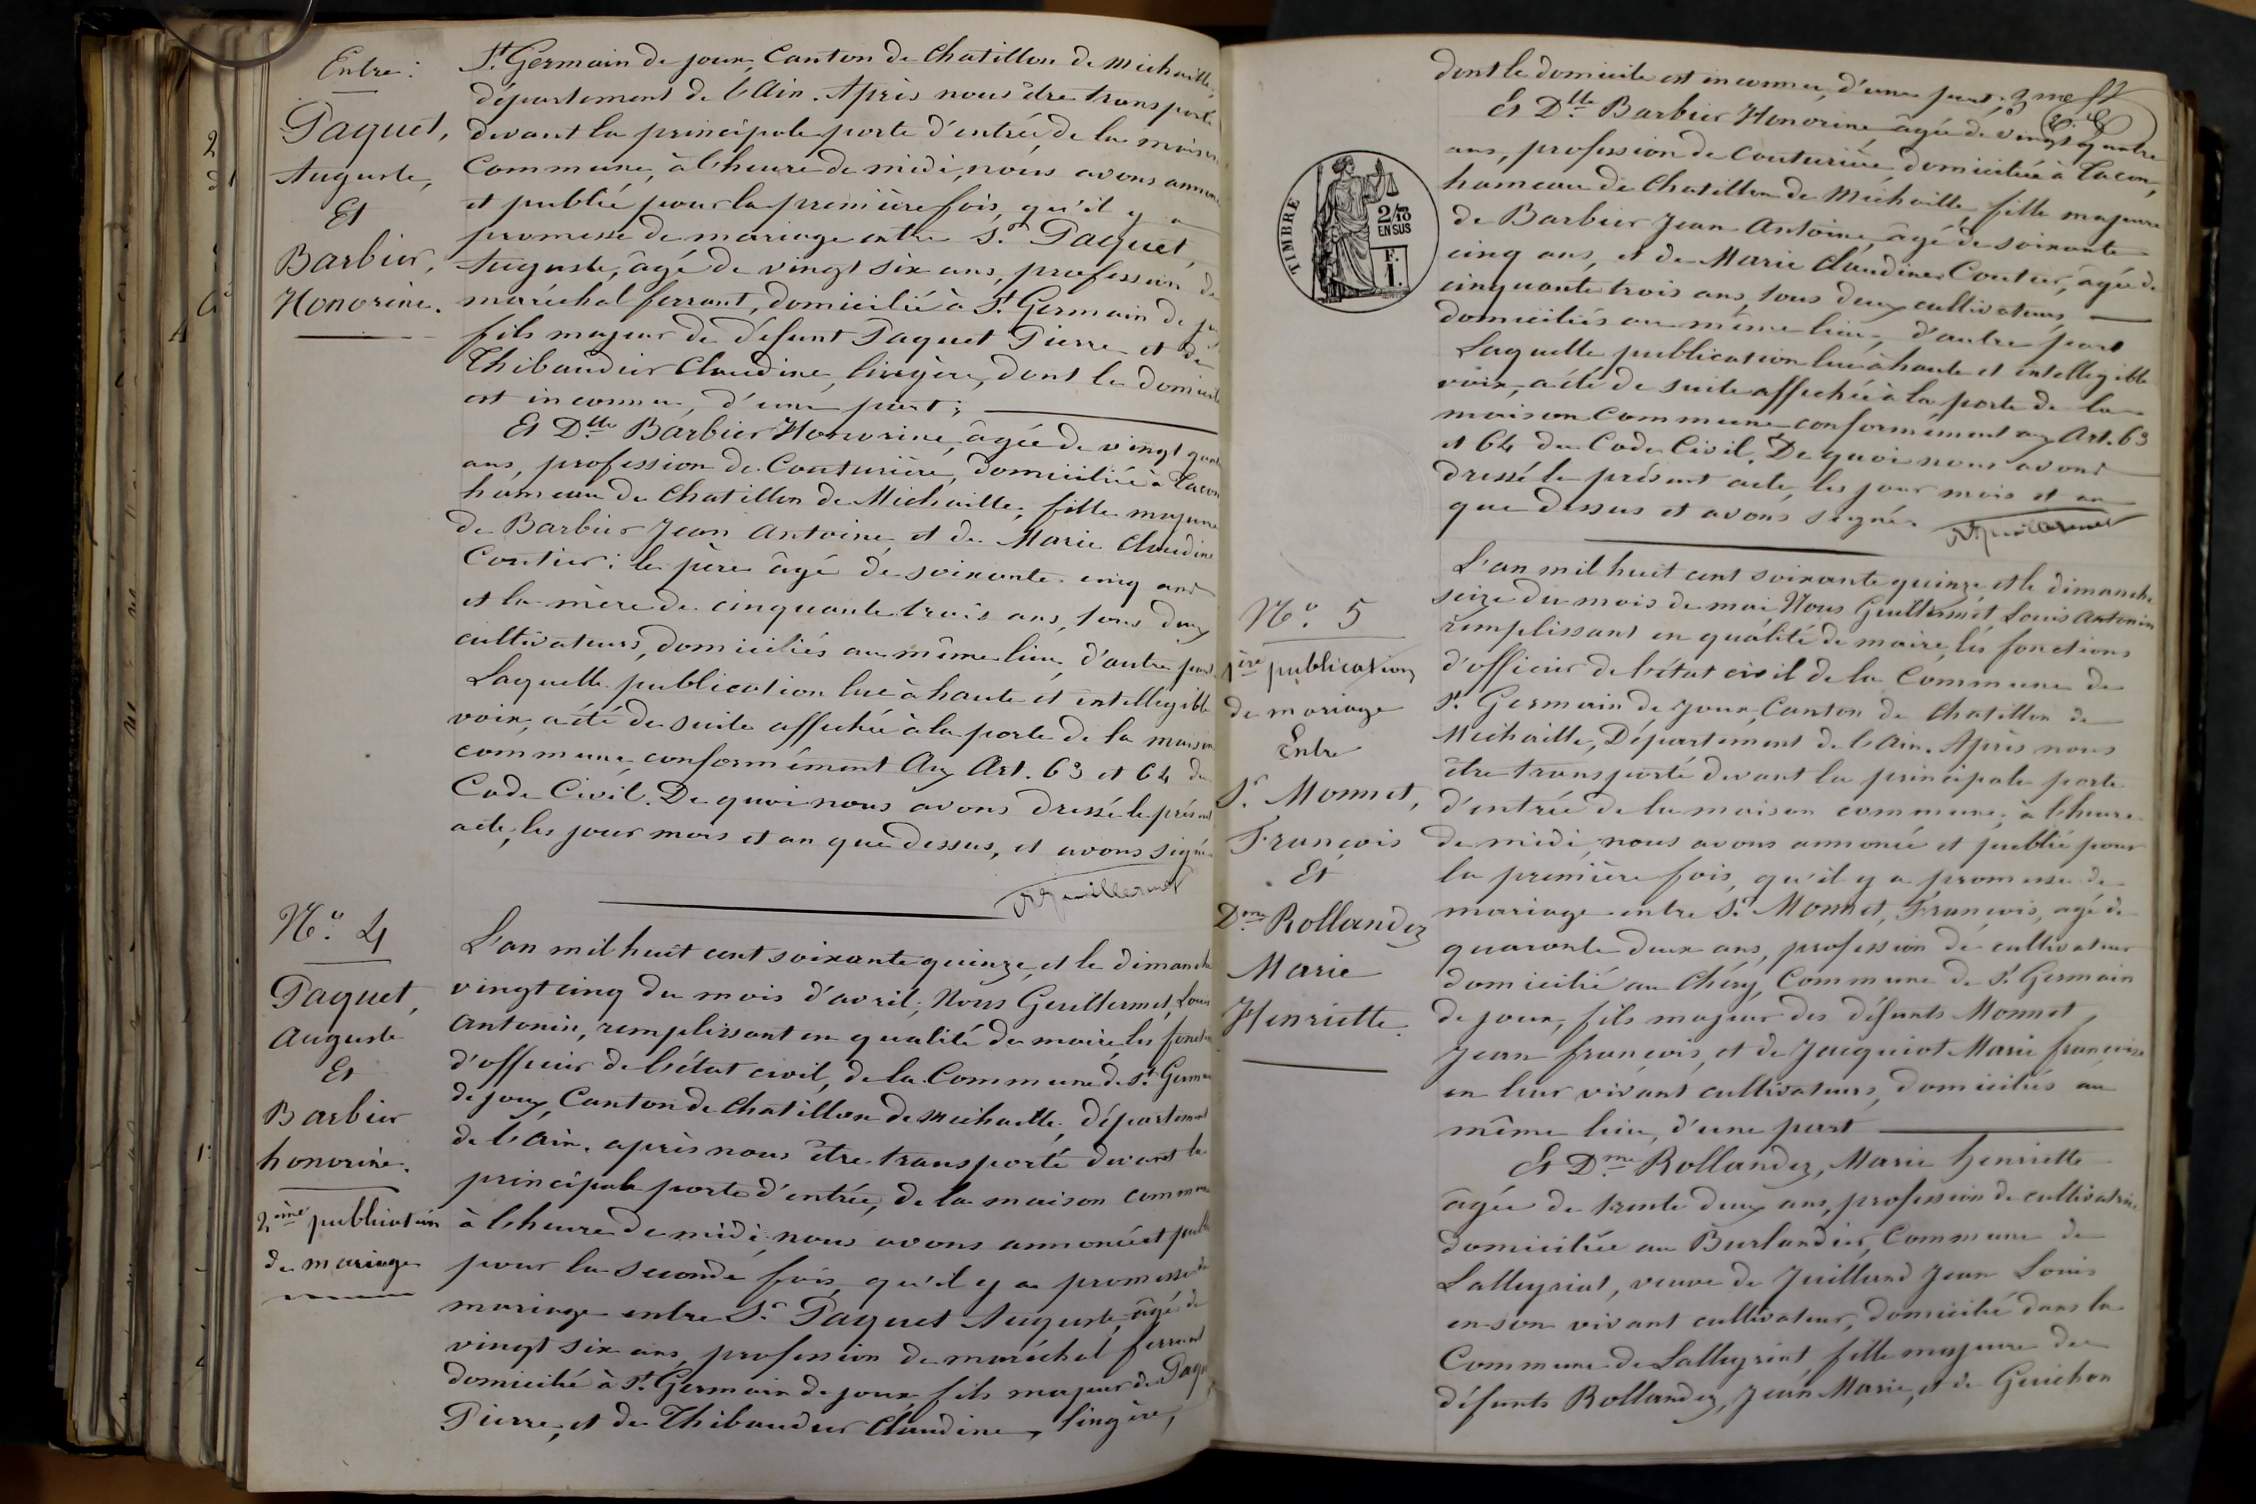 Entre :
Paquet,
Auguste,
Et
Barbier,
Honorine.
St. Germain de joux, Canton de Chatillon de Michaille,
département de l'Ain. Après nous être transporté
devant la principale porte d'entrée, de la maison
Commune, à l'heure de midi, nous avons annoncé
et publié pour la première fois, qu'il y a
promesse de mariage entre Sr. Paquet,
Auguste, âgé de vingt six ans, profession de
maréchal ferrant, domicilié à St. Germain de jo
fils majeur de défunt Paquet Pierre et de
Thibaudier Claudine, lingère, dont le domicile
est inconnu, d'une part ;
Et Dlle Barbier Honorine, âgée de vingt quatre
ans, profession de Couturière, domiciliée à Tacon
hameau de Chatillon de Michaille, fille majeure
de Barbier Jean Antoine et de Marie Claudine
Coutier : le père âgé de soixante cinq ans
et la mère de cinquante trois ans, tous deux
cultivateurs, domiciliés au même lieu, d'autre part
Laquelle publication lue à haute et intellegible
voix, a été de suite affichée à la porte de la maison
commune, conformément aux Art. 63 et 64 du
Code Civil. De quoi nous avons dressé le présent
acte, les jour mois et an que dessus, et avons signé.
AGuillermet
No. 4
Paquet,
Auguste
Et
Barbier
honorine.
2ème publication
de mariage
L'an mil huit cent soixante quinze, et le dimanche
vingt cinq du mois d'avril, Nous Guillermet, Louis
Antonin, remplissant en qualité de maire les fonct
d'officier de l'état civil, de la Commune de St. Germ
de joux, Canton de Chatillon de Michaille, département
de l'Ain. après nous être transporté devant la
principale porte d'entrée, de la maison commune
à l'heure de midi, nous avons annoncé et publié
pour la seconde fois, qu'il y a promesse de
mariage entre Sr. Paquet Auguste, âgé de
vingt six ans, profession de maréchal ferrant
domicilié à St. Germain de joux, fils majeur de Paqu
Pierre, et de Thibaudier Claudine, lingère,
dont le domicile est inconnu, d'une part ;
Et Dlle Barbier Honorine âgée de vingt quatre
ans, profession de Couturière, domiciliée à Tacon,
hameau de Chatillon de Michaille, fille majeure
de Barbier Jean Antoine, âgé de soixante
cinq ans, et de Marie Claudine Coutier, âgée de
cinquante trois ans, tous deux cultivateurs,
domiciliés au même lieu, d'autre part
Laquelle publication lue à haute et intellegible
voix, a été de suite affichée à la porte de la
maison Commune conformément aux Art. 63
et 64 du Code Civil. De quoi nous avons
dressé le présent acte, les jour mois et an
que dessus et avons signé.
AGuillermet
TIMBRE
2/10
EN SUS
F.
1.
No. 5
1ère publication
de mariage
Entre
Sr. Monnet,
François
Et
Dme Rollandez
Marie
Henriette.
L'an mil huit cent soixante quinze, et le dimanche
seize du mois de mai Nous Guillermet Louis Antonin
remplissant en qualité de maire, les fonctions
d'officier de l'état civil de la Commune de
St. Germain de Joux, Canton de Chatillon de
Michaille, Département de l'Ain. Après nous
être transporté devant la principale porte
d'entrée de la maison commune, à l'heure
de midi, nous avons annoncé et publié pour
la première fois, qu'il y a promesse de
mariage entre Sr. Monnet, François, agé de
quarante deux ans, profession de cultivateur
domicilié au Chéry, Commune de St. Germain
de joux, fils majeur des défunts Monnet,
Jean françois, et de Jacquiot Marie françoise
en leur vivant cultivateurs, domiciliés au
même lieu, d'une part
Et Dme Rollandez, Marie henriette
âgée de trente deux ans, profession de cultivatrice
domiciliée au Burlandier, Commune de
Lalleyriat, veuve de Juilland Jean Louis
en son vivant cultivateur, domicilié dans la
Commune de Lalleyriat, fille majeure de
défunts Rollandez, Jean Marie, et de Guichon